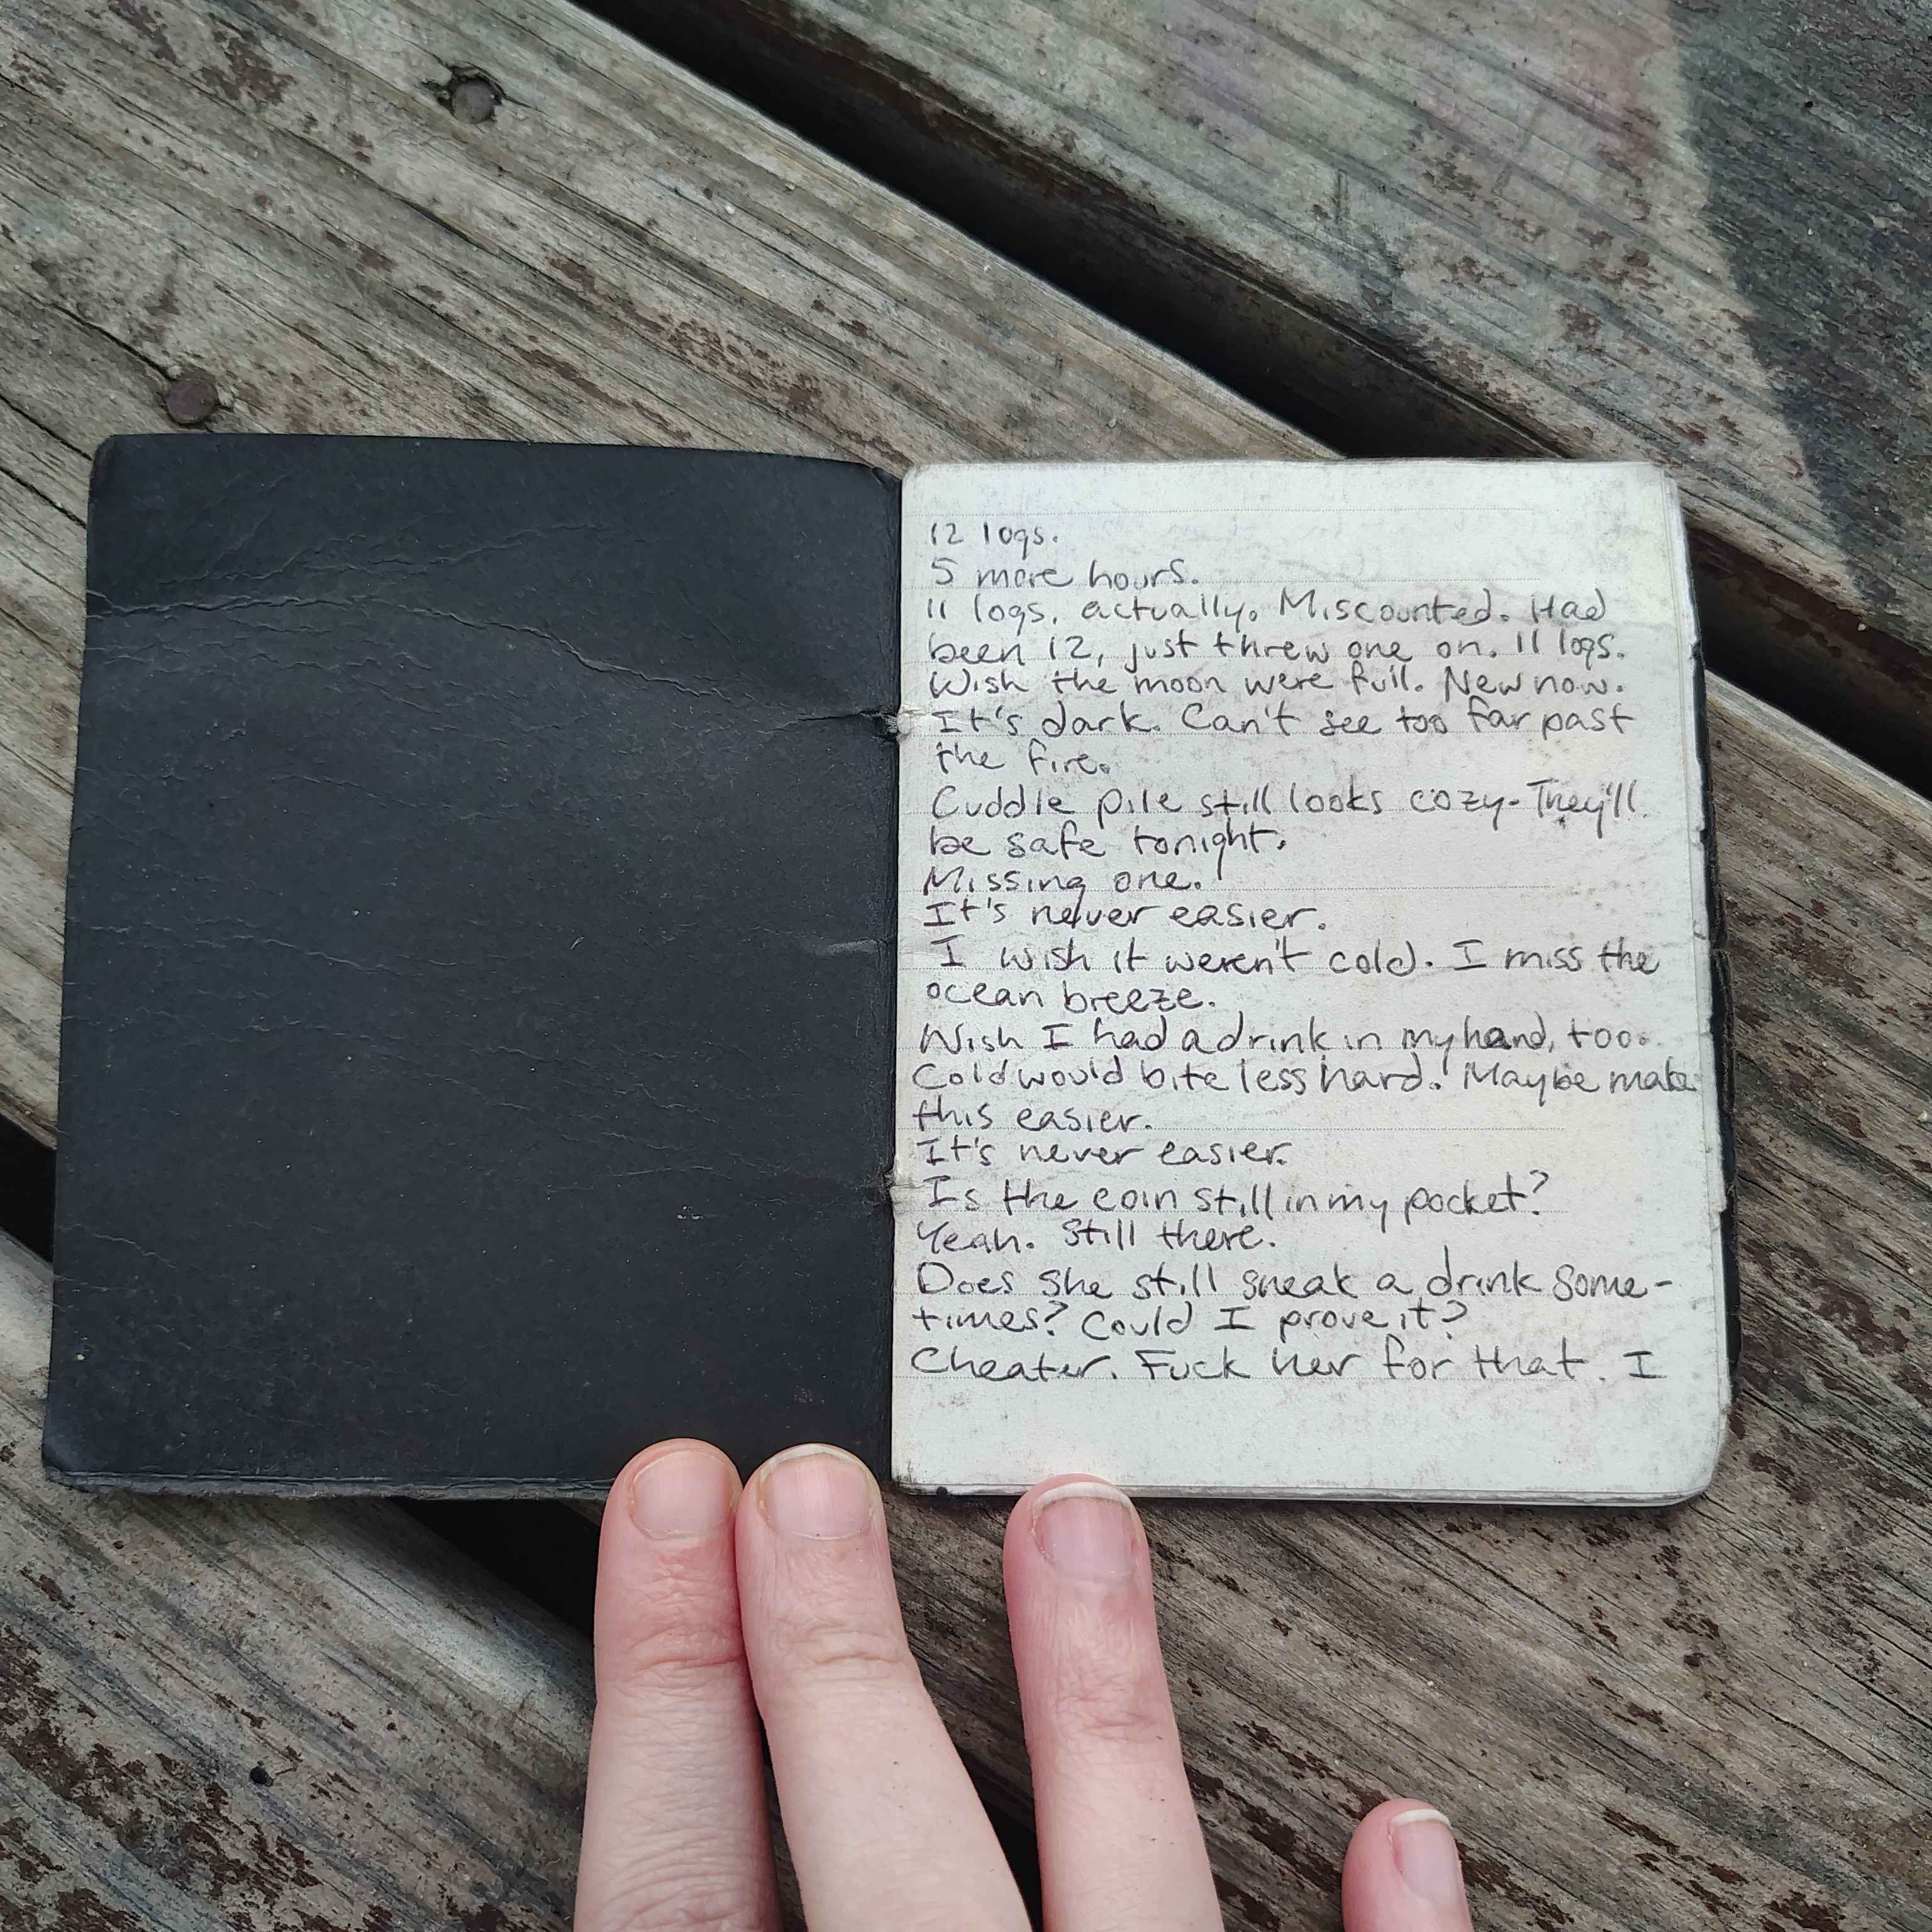 12 logs.
5 more hours.
11 logs, actually. Miscounted. Had
been 12, just threw one on. 11 logs.
Wish the moon were full. New now.
It's dark. Can't see too far past
the fire.
Cuddle pile still looks cozy. They'll
be safe tonight.
Missing one.
It's never easier.
I wish it weren't cold. I miss the
ocean breeze.
Wish I had a drink in my hand, too.
Cold would bite less hard. Maybe make
this easier.
It's never easier.
Is the coin still in my pocket?
Yeah. Still there.
Does she still sneak a drink some-
times? Could I prove it?
Cheater. Fuck her for that. I